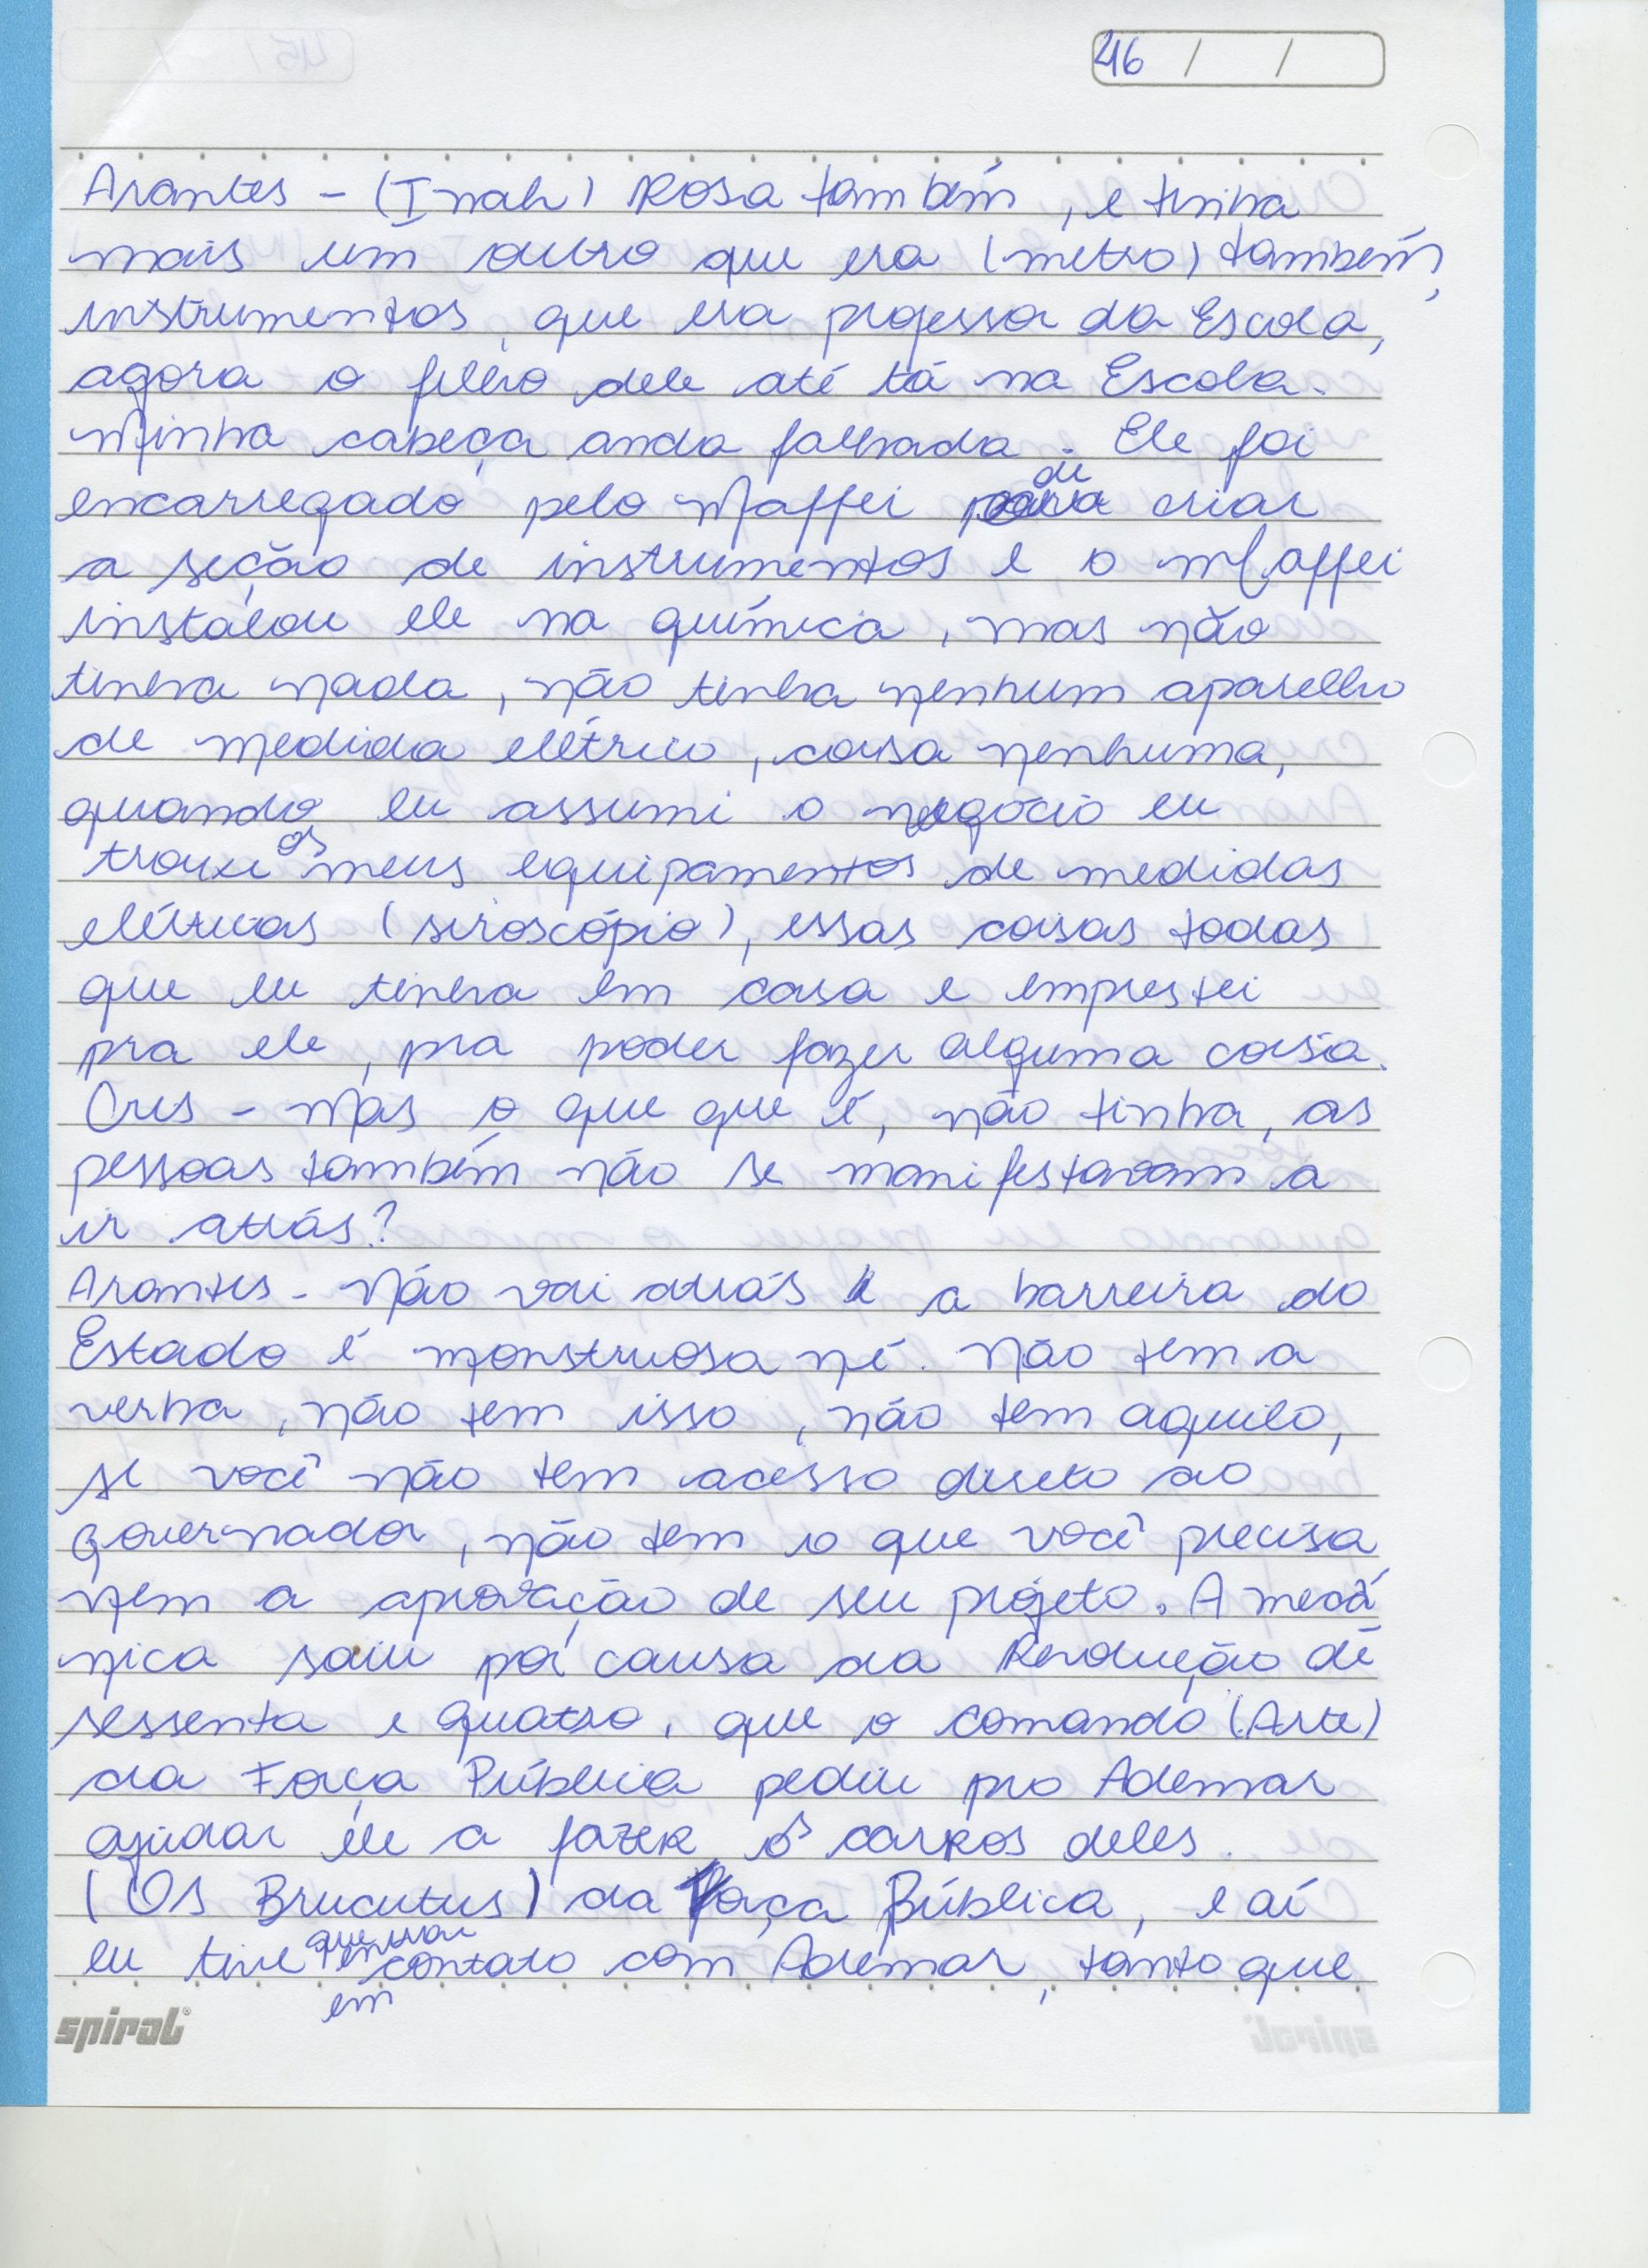 46 / /
Arantes - (Inah) Rosa também, e tinha
mais um outro que era (metro) também,
instrumentos, que era professor da Escola,
agora o filho dele até tá na Escola.
Minha cabeça anda falhada. Ele foi
encarregado pelo Maffei de criar
a seção de instrumentos e o Maffei
instalou ele na química, mas não
tinha nada, não tinha nenhum aparelho
de medida elétrico, coisa nenhuma,
quando eu assumi o negócio eu
trouxe os meus equipamentos de medidas
elétricas (siroscópio), essas coisas todas
que eu tinha em casa e emprestei
pra ele, pra poder fazer alguma coisa.
Cris - Mas o que que é, não tinha, as
pessoas também não se manifestavam a
ir atrás?
Arantes - Não vai atrás a barreira do
Estado é monstruosa né. Não tem a
verba, não tem isso, não tem aquilo,
se você não tem acesso direto ao
governador, não tem o que você precisa
nem a aprovação de seu projeto. A mecâ
nica saiu por causa da Revolução de
sessenta e quatro, que o comando (Arte)
da Força Pública pediu pro Ademar
ajudar ele a fazer os carros deles.
(Os Brucutus) da Força Pública, e aí
eu tive que entrar em contato com Ademar, tanto que
spiral®